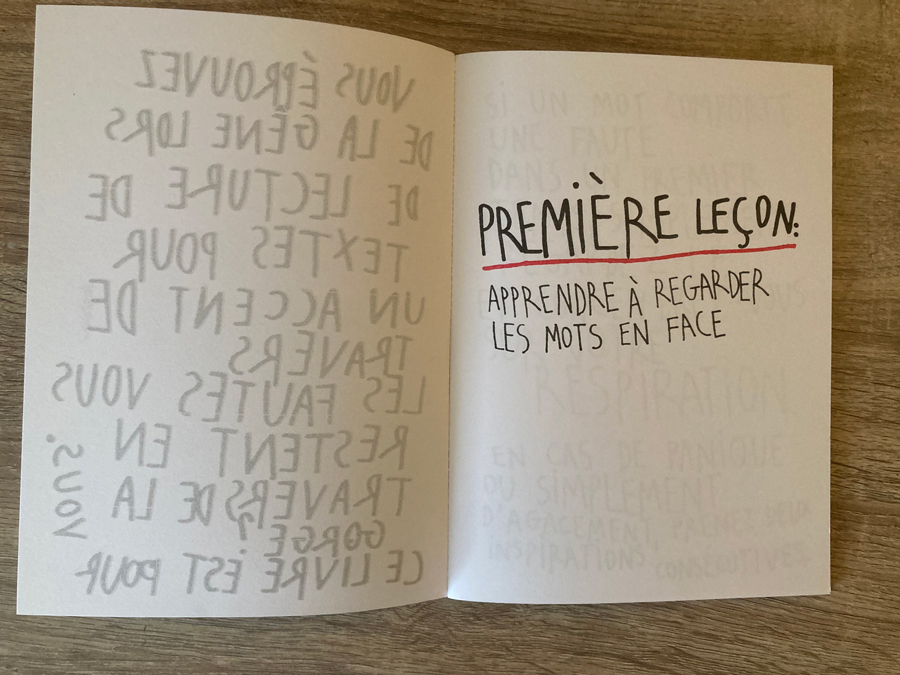 VOUS ÉPROUVEZ
DE LA GÊNE LORS
DE LECTURE DE
TEXTES POUR
UN ACCENT DE
TRAVERS
LES FAUTES VOUS
RESTENT EN
TRAVERS DE LA
GORGE ?
CE LIVRE EST POUR
VOUS.
PREMIÈRE LEÇON:
APPRENDRE À REGARDER
LES MOTS EN FACE
SI UN MOT COMPORTE
UNE FAUTE
DANS UN PREMIER
RESPIRATION
EN CAS DE PANIQUE
OU SIMPLEMENT
D'AGACEMENT, PRENEZ DEUX
INSPIRATIONS CONSECUTIVES